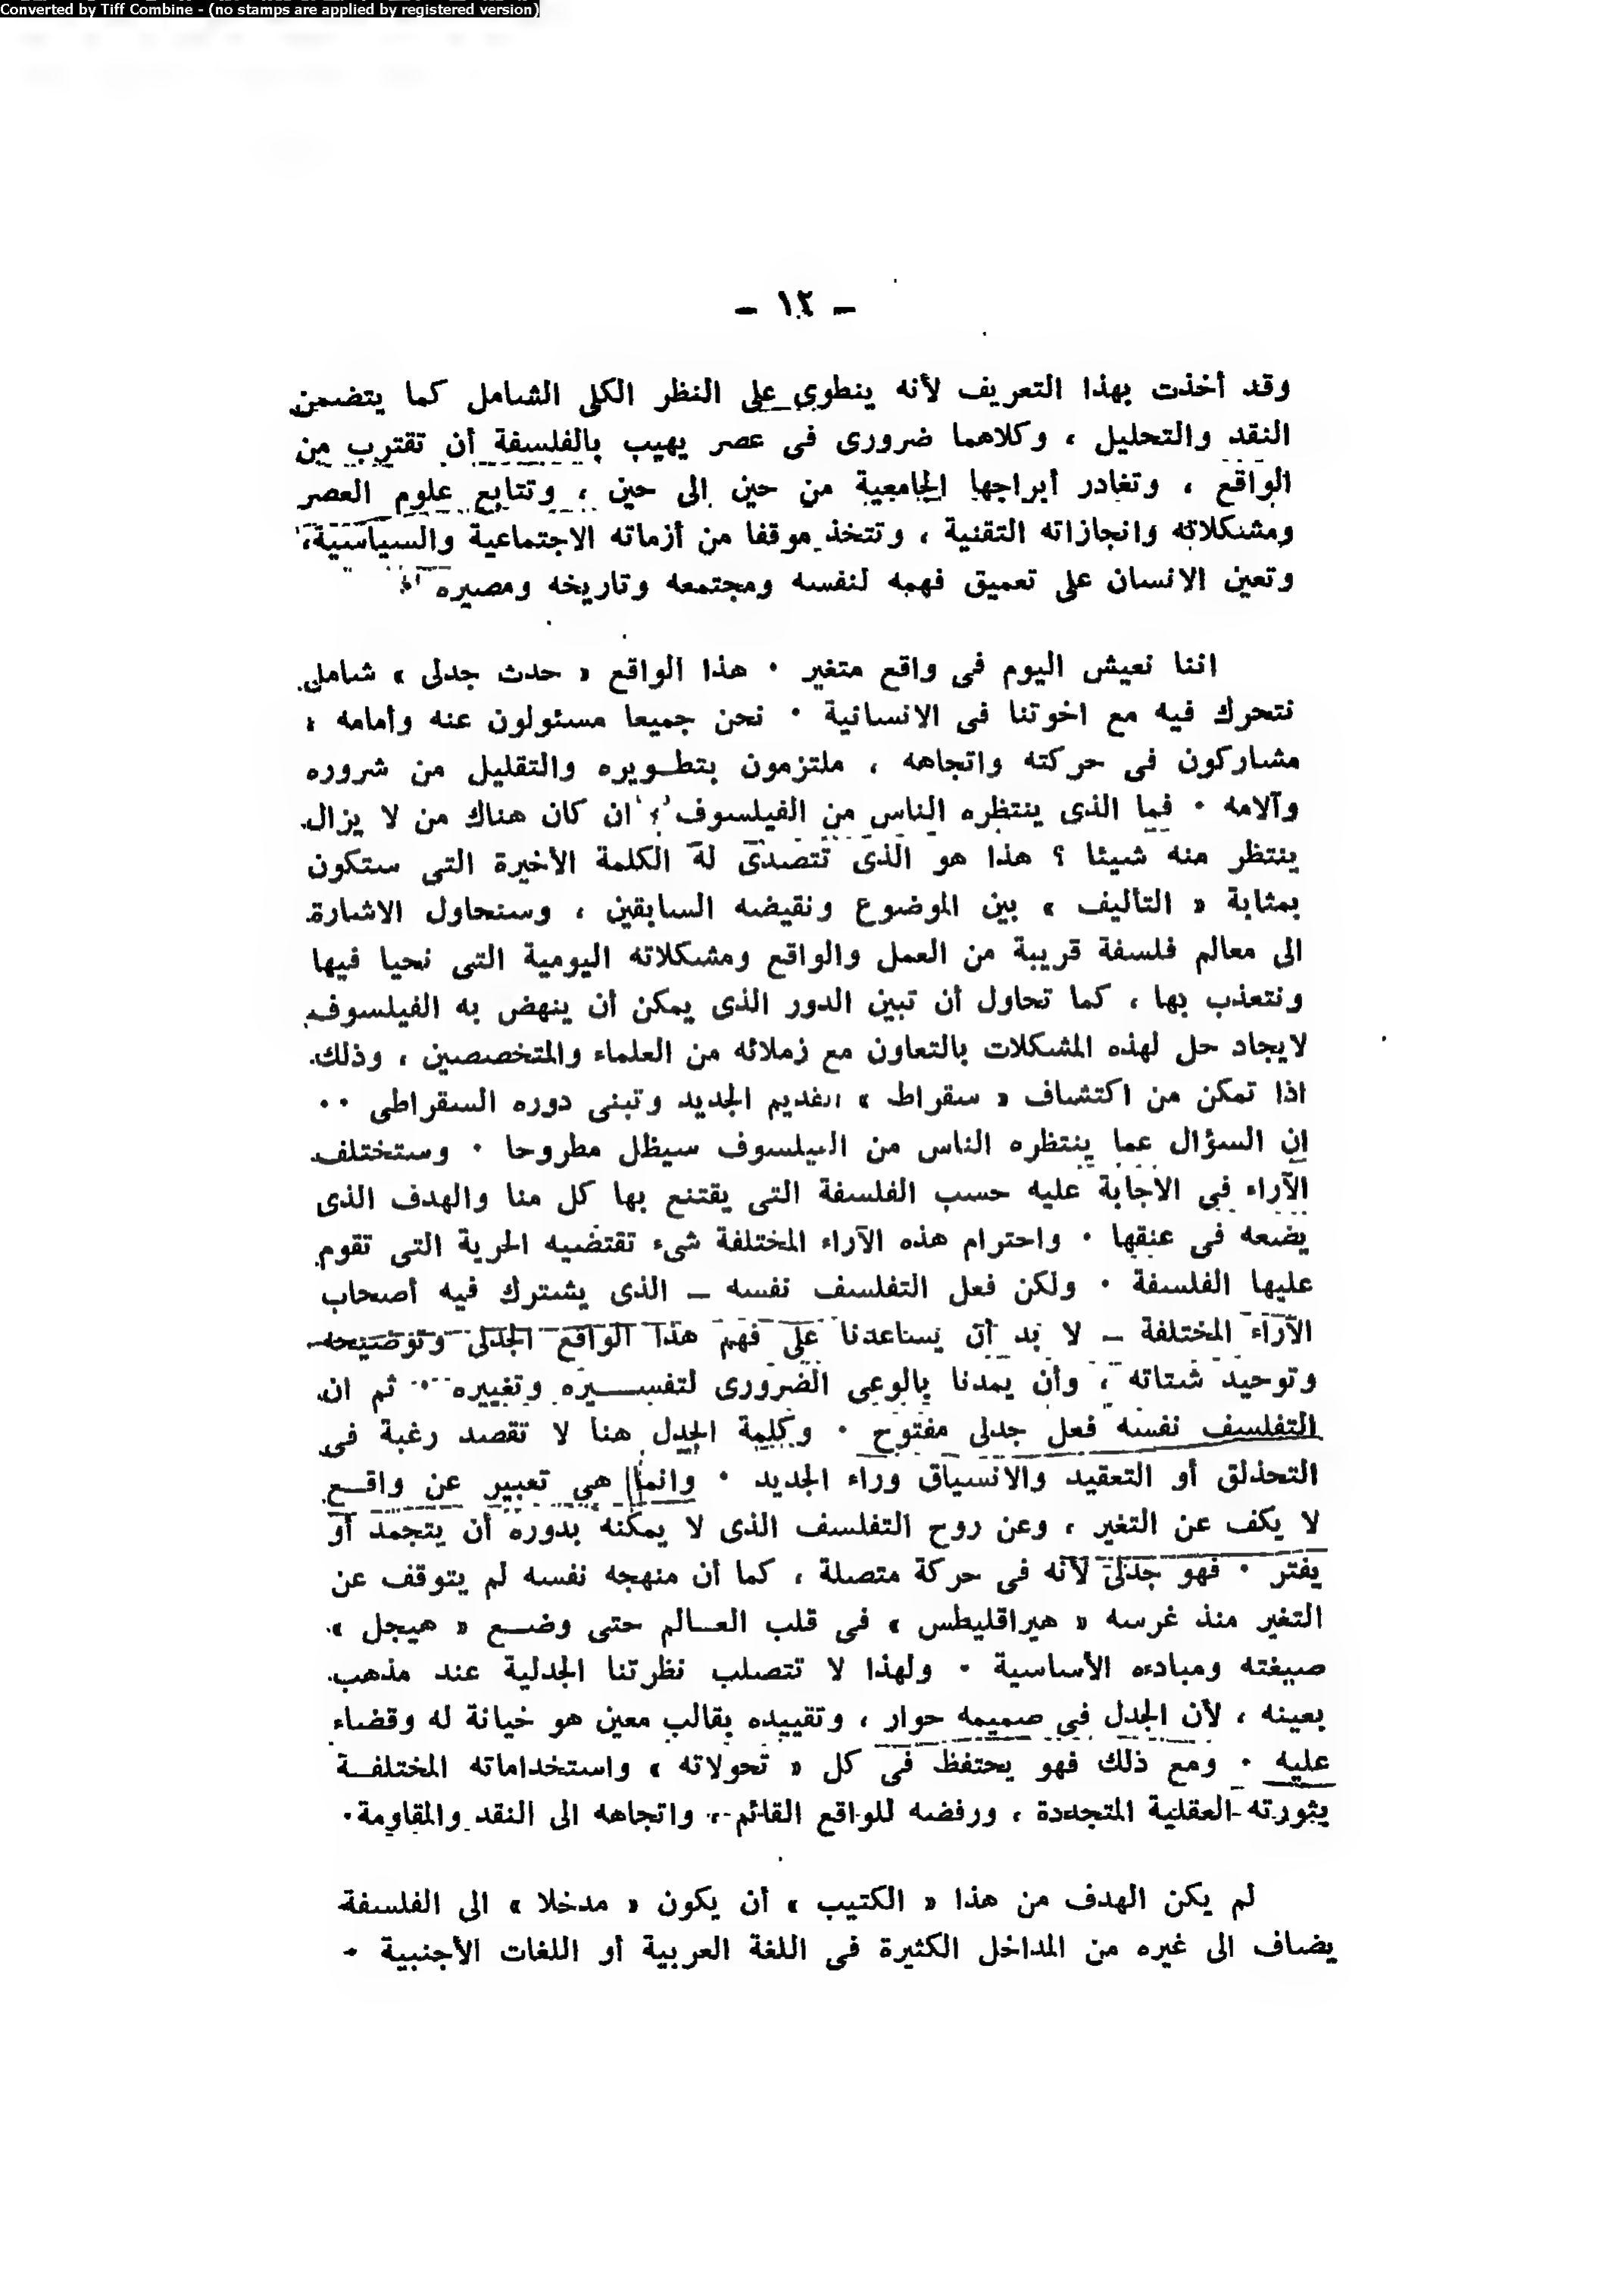 Converted by Tiff Combine - (no stamps are applied by registered version)
– ١٢ –
وقد أخذت بهذا التعريف لأنه ينطوى على النظر الكلى الشامل كما يتضمن
النقد والتحليل ، وكلاهما ضرورى فى عصر يهيب بالفلسفة أن تقترب من
الواقع ، وتغادر أبراجها الجامعية من حين الى حين ، وتتابع علوم العصر
ومشكلاته وانجازاته التقنية ، وتتخذ موقفا من أزماته الاجتماعية والسياسية ،
وتعين الانسان على تعميق فهمه لنفسه ومجتمعه وتاريخه ومصيره
اننا نعيش اليوم فى واقع متغير · هذا الواقع « حدث جدلى » شامل
نتحرك فيه مع اخوتنا فى الانسانية · نحن جميعا مسئولون عنه وأمامه ،
مشاركون فى حركته واتجاهه ، ملتزمون بتطـويره والتقليل من شروره
وآلامه · فما الذى ينتظره الناس من الفيلسوف ، ان كان هناك من لا يزال
ينتظر منه شيئا ؟ هذا هو الذى تتصدى له الكلمة الأخيرة التى ستكون
بمثابة « التأليف » بين الموضوع ونقيضه السابقين ، وسنحاول الاشارة
الى معالم فلسفة قريبة من العمل والواقع ومشكلاته اليومية التى نحيا فيها
ونتعذب بها ، كما تحاول أن تبين الدور الذى يمكن أن ينهض به الفيلسوف
لايجاد حل لهذه المشكلات بالتعاون مع زملائه من العلماء والمتخصصين ، وذلك
اذا تمكن من اكتشاف « سقراط » القديم الجديد وتبنى دوره السقراطى ··
ان السؤال عما ينتظره الناس من الفيلسوف سيظل مطروحا · وستختلف
الآراء فى الاجابة عليه حسب الفلسفة التى يقتنع بها كل منا والهدف الذى
يضعه فى عنقها · واحترام هذه الآراء المختلفة شىء تقتضيه الحرية التى تقوم
عليها الفلسفة · ولكن فعل التفلسف نفسه – الذى يشترك فيه أصحاب
الآراء المختلفة – لا بد أن يساعدنا على فهم هذا الواقع الجدلى وتوضيحه
وتوحيد شتاته ، وأن يمدنا بالوعى الضرورى لتفســيره وتغييره ·· ثم ان
التفلسف نفسه فعل جدلى مفتوح · وكلمة الجدل هنا لا تقصد رغبة فى
التحذلق أو التعقيد والانسياق وراء الجديد · وانما هى تعبير عن واقــع
لا يكف عن التغير ، وعن روح التفلسف الذى لا يمكنه بدوره أن يتجمد أو
يفتر · فهو جدلى لأنه فى حركة متصلة ، كما أن منهجه نفسه لم يتوقف عن
التغير منذ غرسه « هيراقليطس » فى قلب العــالم حتى وضــع « هيجل »
صيغته ومبادءه الأساسية · ولهذا لا تتصلب نظرتنا الجدلية عند مذهب
بعينه ، لأن الجدل فى صميمه حوار ، وتقييده بقالب معين هو خيانة له وقضاء
عليه · ومع ذلك فهو يحتفظ فى كل « تحولاته » واستخداماته المختلفــة
بثورته العقلية المتجددة ، ورفضه للواقع القائم ، واتجاهه الى النقد والمقاومة ·
لم يكن الهدف من هذا « الكتيب » أن يكون « مدخلا » الى الفلسفة
يضاف الى غيره من المداخل الكثيرة فى اللغة العربية أو اللغات الأجنبية ·